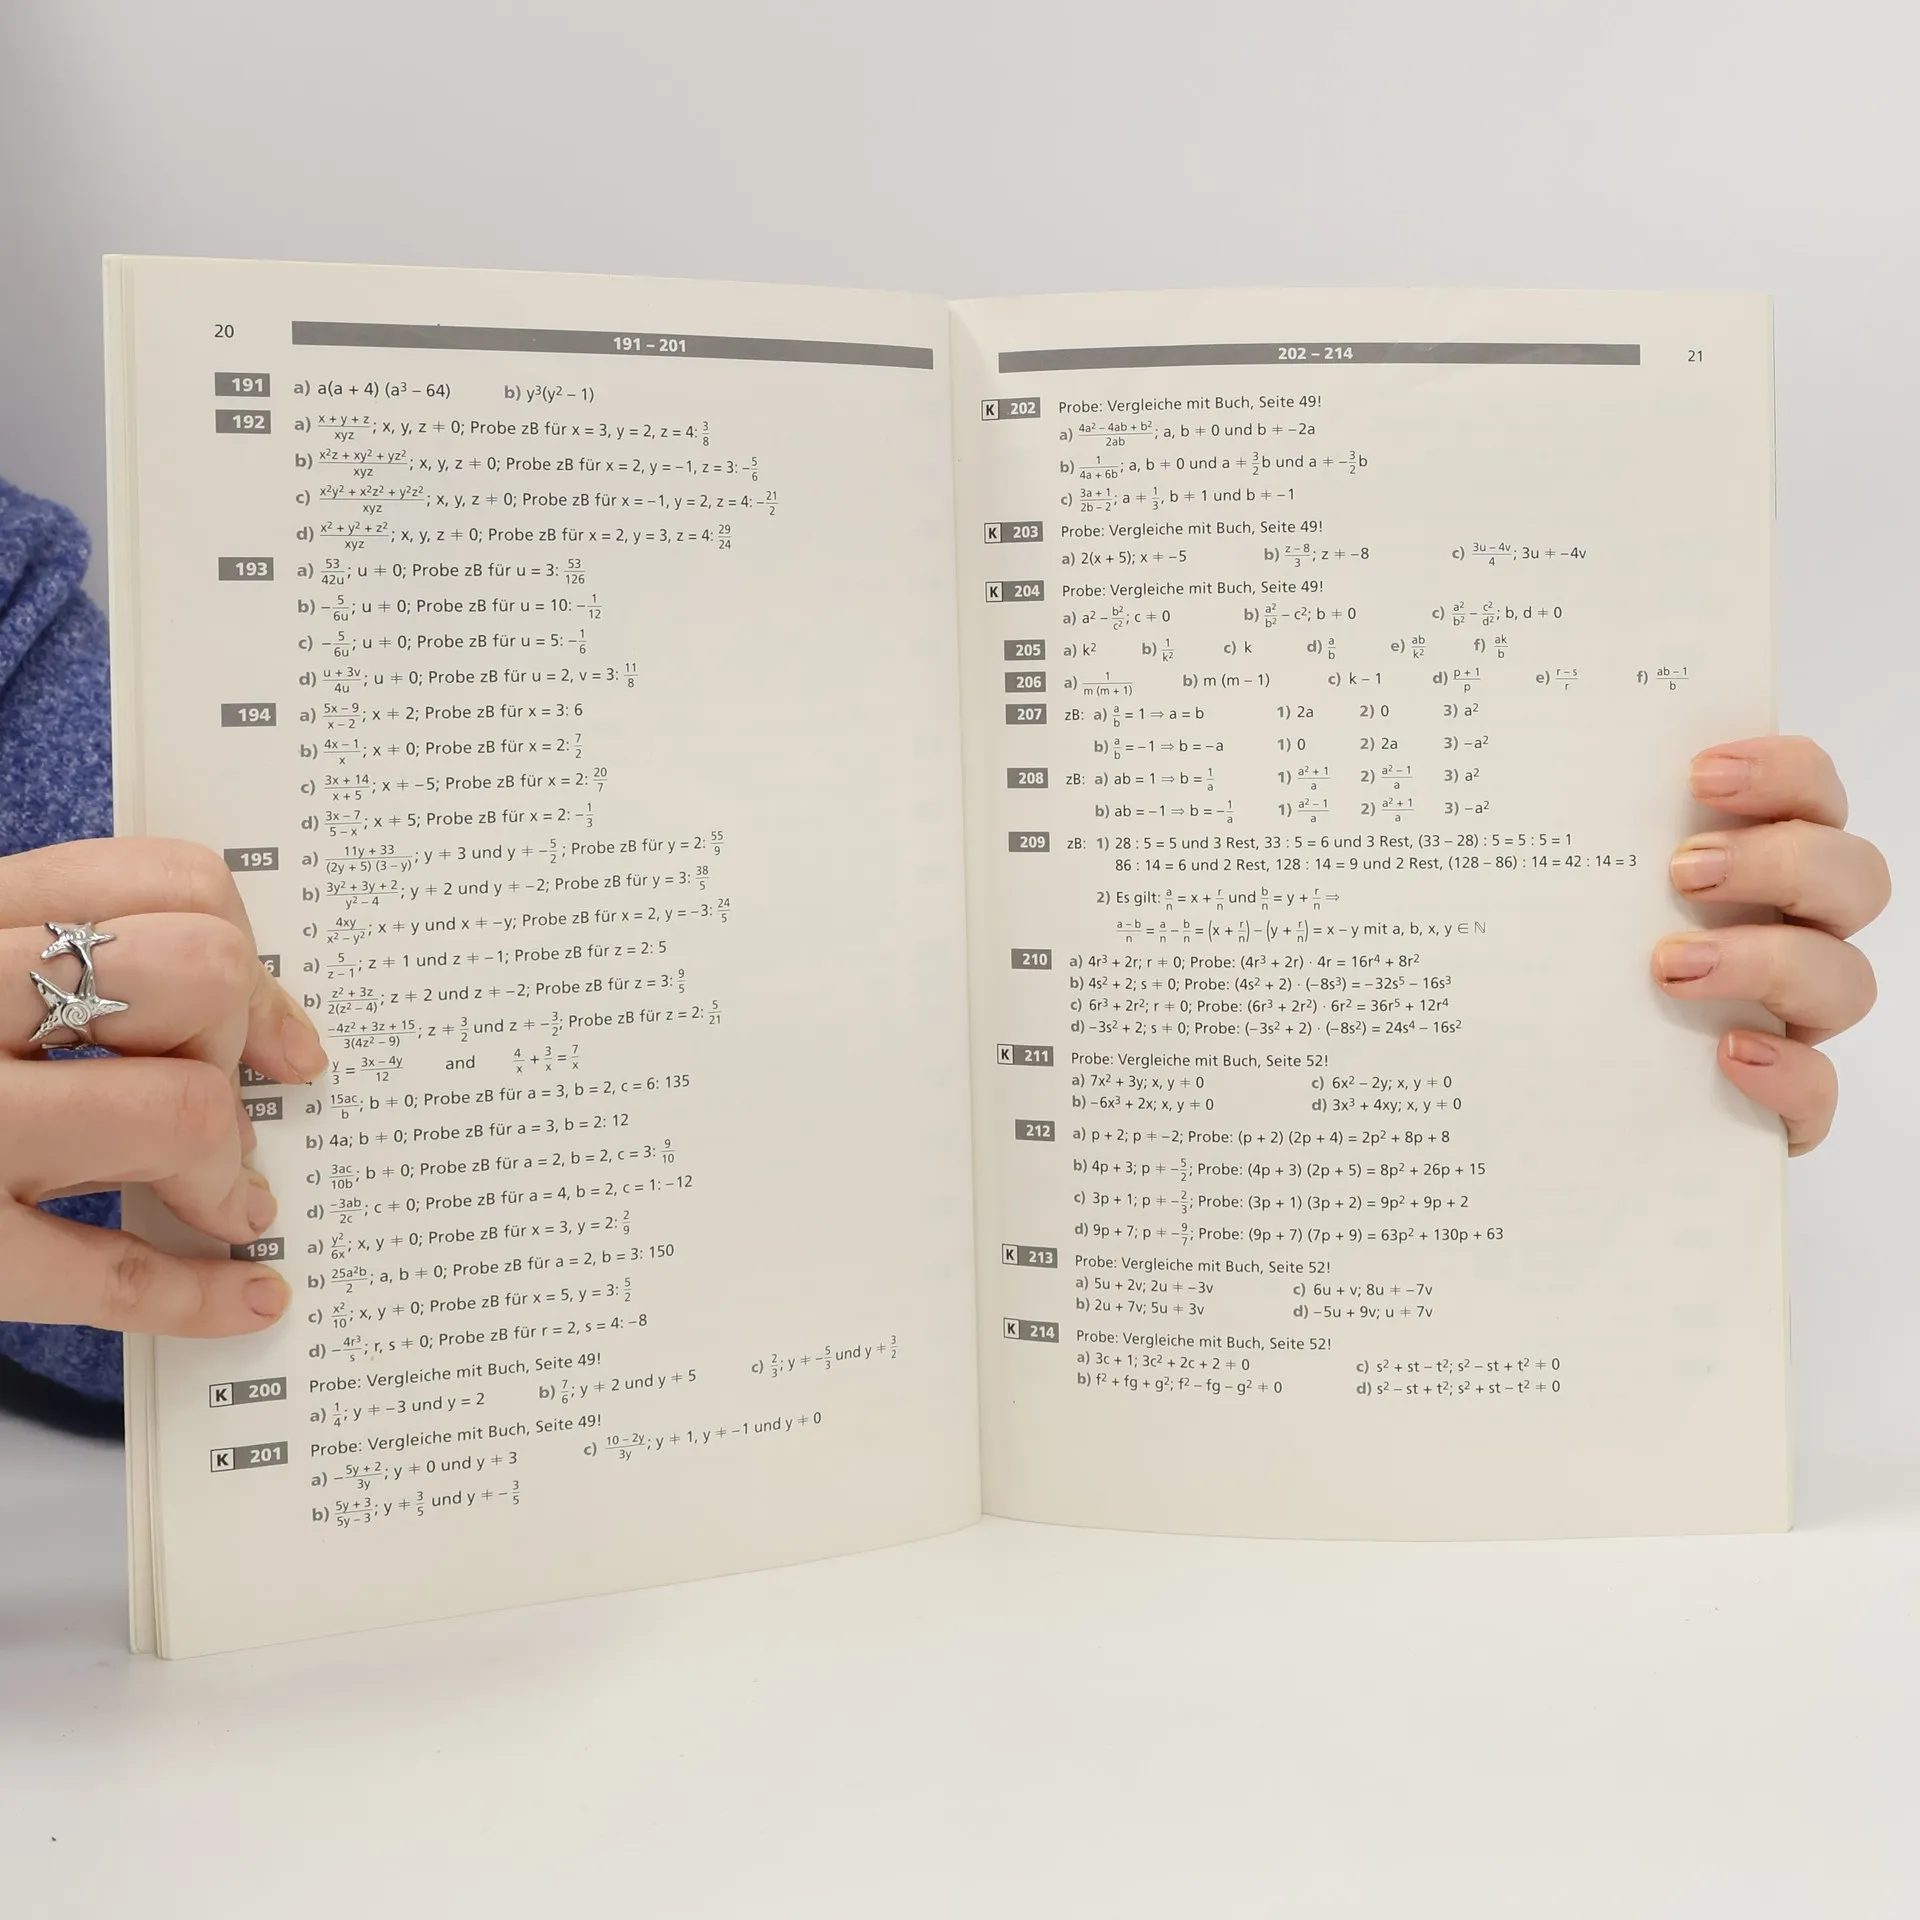 20
191 – 201
191 a) a(a + 4) (a³ – 64) b) y³(y² – 1)
192 a) (x + y + z)/(xyz); x, y, z ≠ 0; Probe zB für x = 3, y = 2, z = 4: 3/8
b) (x²z + xy² + yz²)/(xyz); x, y, z ≠ 0; Probe zB für x = 2, y = –1, z = 3: –5/6
c) (x²y² + x²z² + y²z²)/(xyz); x, y, z ≠ 0; Probe zB für x = –1, y = 2, z = 4: –21/2
d) (x² + y² + z²)/(xyz); x, y, z ≠ 0; Probe zB für x = 2, y = 3, z = 4: 29/24
193 a) 53/(42u); u ≠ 0; Probe zB für u = 3: 53/126
b) –5/(6u); u ≠ 0; Probe zB für u = 10: –1/12
c) –5/(6u); u ≠ 0; Probe zB für u = 5: –1/6
d) (u + 3v)/(4u); u ≠ 0; Probe zB für u = 2, v = 3: 11/8
194 a) (5x – 9)/(x – 2); x ≠ 2; Probe zB für x = 3: 6
b) (4x – 1)/x; x ≠ 0; Probe zB für x = 2: 7/2
c) (3x + 14)/(x + 5); x ≠ –5; Probe zB für x = 2: 20/7
d) (3x – 7)/(5 – x); x ≠ 5; Probe zB für x = 2: –1/3
195 a) (11y + 33)/((2y + 5) (3 – y)); y ≠ 3 und y ≠ –5/2; Probe zB für y = 2: 55/9
b) (3y² + 3y + 2)/(y² – 4); y ≠ 2 und y ≠ –2; Probe zB für y = 3: 38/5
c) (4xy)/(x² – y²); x ≠ y und x ≠ –y; Probe zB für x = 2, y = –3: 24/5
6 a) 5/(z – 1); z ≠ 1 und z ≠ –1; Probe zB für z = 2: 5
b) (z² + 3z)/(2(z² – 4)); z ≠ 2 und z ≠ –2; Probe zB für z = 3: 9/5
(–4z² + 3z + 15)/(3(4z² – 9)); z ≠ 3/2 und z ≠ –3/2; Probe zB für z = 2: 5/21
19 y/3 = (3x – 4y)/12 and 4/x + 3/x = 7/x
198 a) 15ac/b; b ≠ 0; Probe zB für a = 3, b = 2, c = 6: 135
b) 4a; b ≠ 0; Probe zB für a = 3, b = 2: 12
c) 3ac/(10b); b ≠ 0; Probe zB für a = 2, b = 2, c = 3: 9/10
d) –3ab/(2c); c ≠ 0; Probe zB für a = 4, b = 2, c = 1: –12
199 a) y²/(6x); x, y ≠ 0; Probe zB für x = 3, y = 2: 2/9
b) 25a²b/2; a, b ≠ 0; Probe zB für a = 2, b = 3: 150
c) x²/10; x, y ≠ 0; Probe zB für x = 5, y = 3: 5/2
d) –4r³/s; r, s ≠ 0; Probe zB für r = 2, s = 4: –8
K 200 Probe: Vergleiche mit Buch, Seite 49!
a) 1/4; y ≠ –3 und y = 2 b) 7/6; y ≠ 2 und y ≠ 5 c) 2/3; y ≠ –5/3 und y ≠ 3/2
K 201 Probe: Vergleiche mit Buch, Seite 49!
a) –(5y + 2)/(3y); y ≠ 0 und y ≠ 3 c) (10 – 2y)/(3y); y ≠ 1, y ≠ –1 und y ≠ 0
b) (5y + 3)/(5y – 3); y ≠ 3/5 und y ≠ –3/5
202 – 214
21
K 202 Probe: Vergleiche mit Buch, Seite 49!
a) (4a² – 4ab + b²)/(2ab); a, b ≠ 0 und b ≠ –2a
b) 1/(4a + 6b); a, b ≠ 0 und a ≠ 3/2b und a ≠ –3/2b
c) (3a + 1)/(2b – 2); a ≠ 1/3, b ≠ 1 und b ≠ –1
K 203 Probe: Vergleiche mit Buch, Seite 49!
a) 2(x + 5); x ≠ –5 b) (z – 8)/3; z ≠ –8 c) (3u – 4v)/4; 3u ≠ –4v
K 204 Probe: Vergleiche mit Buch, Seite 49!
a) a² – b²/c²; c ≠ 0 b) a²/b² – c²; b ≠ 0 c) a²/b² – c²/d²; b, d ≠ 0
205 a) k² b) 1/k² c) k d) a/b e) ab/k² f) ak/b
206 a) 1/(m (m + 1)) b) m (m – 1) c) k – 1 d) (p + 1)/p e) (r – s)/r f) (ab – 1)/b
207 zB: a) a/b = 1 ⇒ a = b 1) 2a 2) 0 3) a²
b) a/b = –1 ⇒ b = –a 1) 0 2) 2a 3) –a²
208 zB: a) ab = 1 ⇒ b = 1/a 1) (a² + 1)/a 2) (a² – 1)/a 3) a²
b) ab = –1 ⇒ b = –1/a 1) (a² – 1)/a 2) (a² + 1)/a 3) –a²
209 zB: 1) 28 : 5 = 5 und 3 Rest, 33 : 5 = 6 und 3 Rest, (33 – 28) : 5 = 5 : 5 = 1
86 : 14 = 6 und 2 Rest, 128 : 14 = 9 und 2 Rest, (128 – 86) : 14 = 42 : 14 = 3
2) Es gilt: a/n = x + r/n und b/n = y + r/n ⇒
(a – b)/n = a/n – b/n = (x + r/n) – (y + r/n) = x – y mit a, b, x, y ∈ ℕ
210 a) 4r³ + 2r; r ≠ 0; Probe: (4r³ + 2r) · 4r = 16r⁴ + 8r²
b) 4s² + 2; s ≠ 0; Probe: (4s² + 2) · (–8s³) = –32s⁵ – 16s³
c) 6r³ + 2r²; r ≠ 0; Probe: (6r³ + 2r²) · 6r² = 36r⁵ + 12r⁴
d) –3s² + 2; s ≠ 0; Probe: (–3s² + 2) · (–8s²) = 24s⁴ – 16s²
K 211 Probe: Vergleiche mit Buch, Seite 52!
a) 7x² + 3y; x, y ≠ 0 c) 6x² – 2y; x, y ≠ 0
b) –6x³ + 2x; x, y ≠ 0 d) 3x³ + 4xy; x, y ≠ 0
212 a) p + 2; p ≠ –2; Probe: (p + 2) (2p + 4) = 2p² + 8p + 8
b) 4p + 3; p ≠ –5/2; Probe: (4p + 3) (2p + 5) = 8p² + 26p + 15
c) 3p + 1; p ≠ –2/3; Probe: (3p + 1) (3p + 2) = 9p² + 9p + 2
d) 9p + 7; p ≠ –9/7; Probe: (9p + 7) (7p + 9) = 63p² + 130p + 63
K 213 Probe: Vergleiche mit Buch, Seite 52!
a) 5u + 2v; 2u ≠ –3v c) 6u + v; 8u ≠ –7v
b) 2u + 7v; 5u ≠ 3v d) –5u + 9v; u ≠ 7v
K 214 Probe: Vergleiche mit Buch, Seite 52!
a) 3c + 1; 3c² + 2c + 2 ≠ 0 c) s² + st – t²; s² – st + t² ≠ 0
b) f² + fg + g²; f² – fg – g² ≠ 0 d) s² – st + t²; s² + st – t² ≠ 0